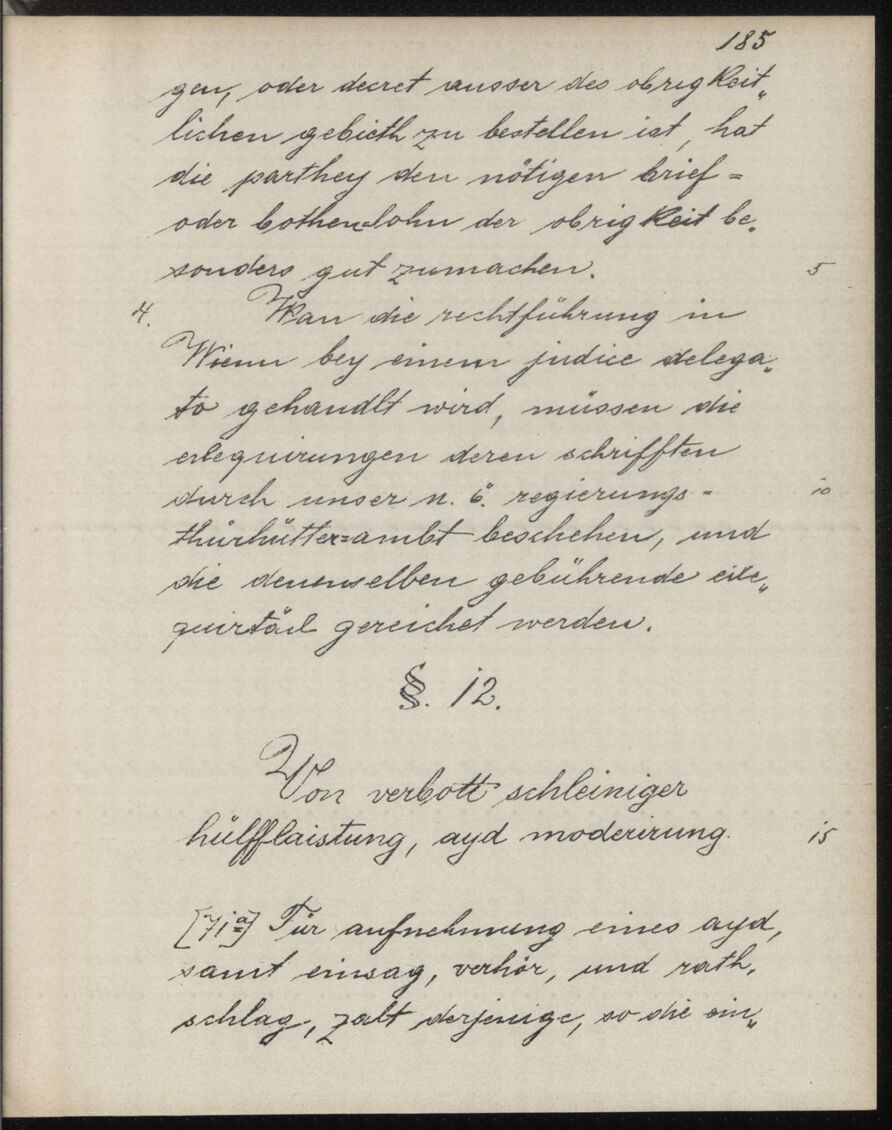 185
gen, oder decret ausser des obrigkeit„
lichen gebieth zu bestellen ist, hat
die parthey den nötigen brief=
oder bothen=lohn der obrigkeit be„
sonders gut zumachen. 5
4. Wan die rechtführung in
Wienn bey einem judice delega„
to gehandlt wird, müssen die
exequirungen deren schrifften
durch unser n. ö. regierungs- 10
thürhütter=ambt beschehen, und
die denenselben gebührende exe„
quirtäxl gereichet werden.
§. 12.
Von verbott schleiniger
hülfflaistung, ayd moderirung. 15
[71a] Für aufnehmung eines ayd,
samt einsag, verhör, und rath„
schlag, zalt derjenige, so die ein„